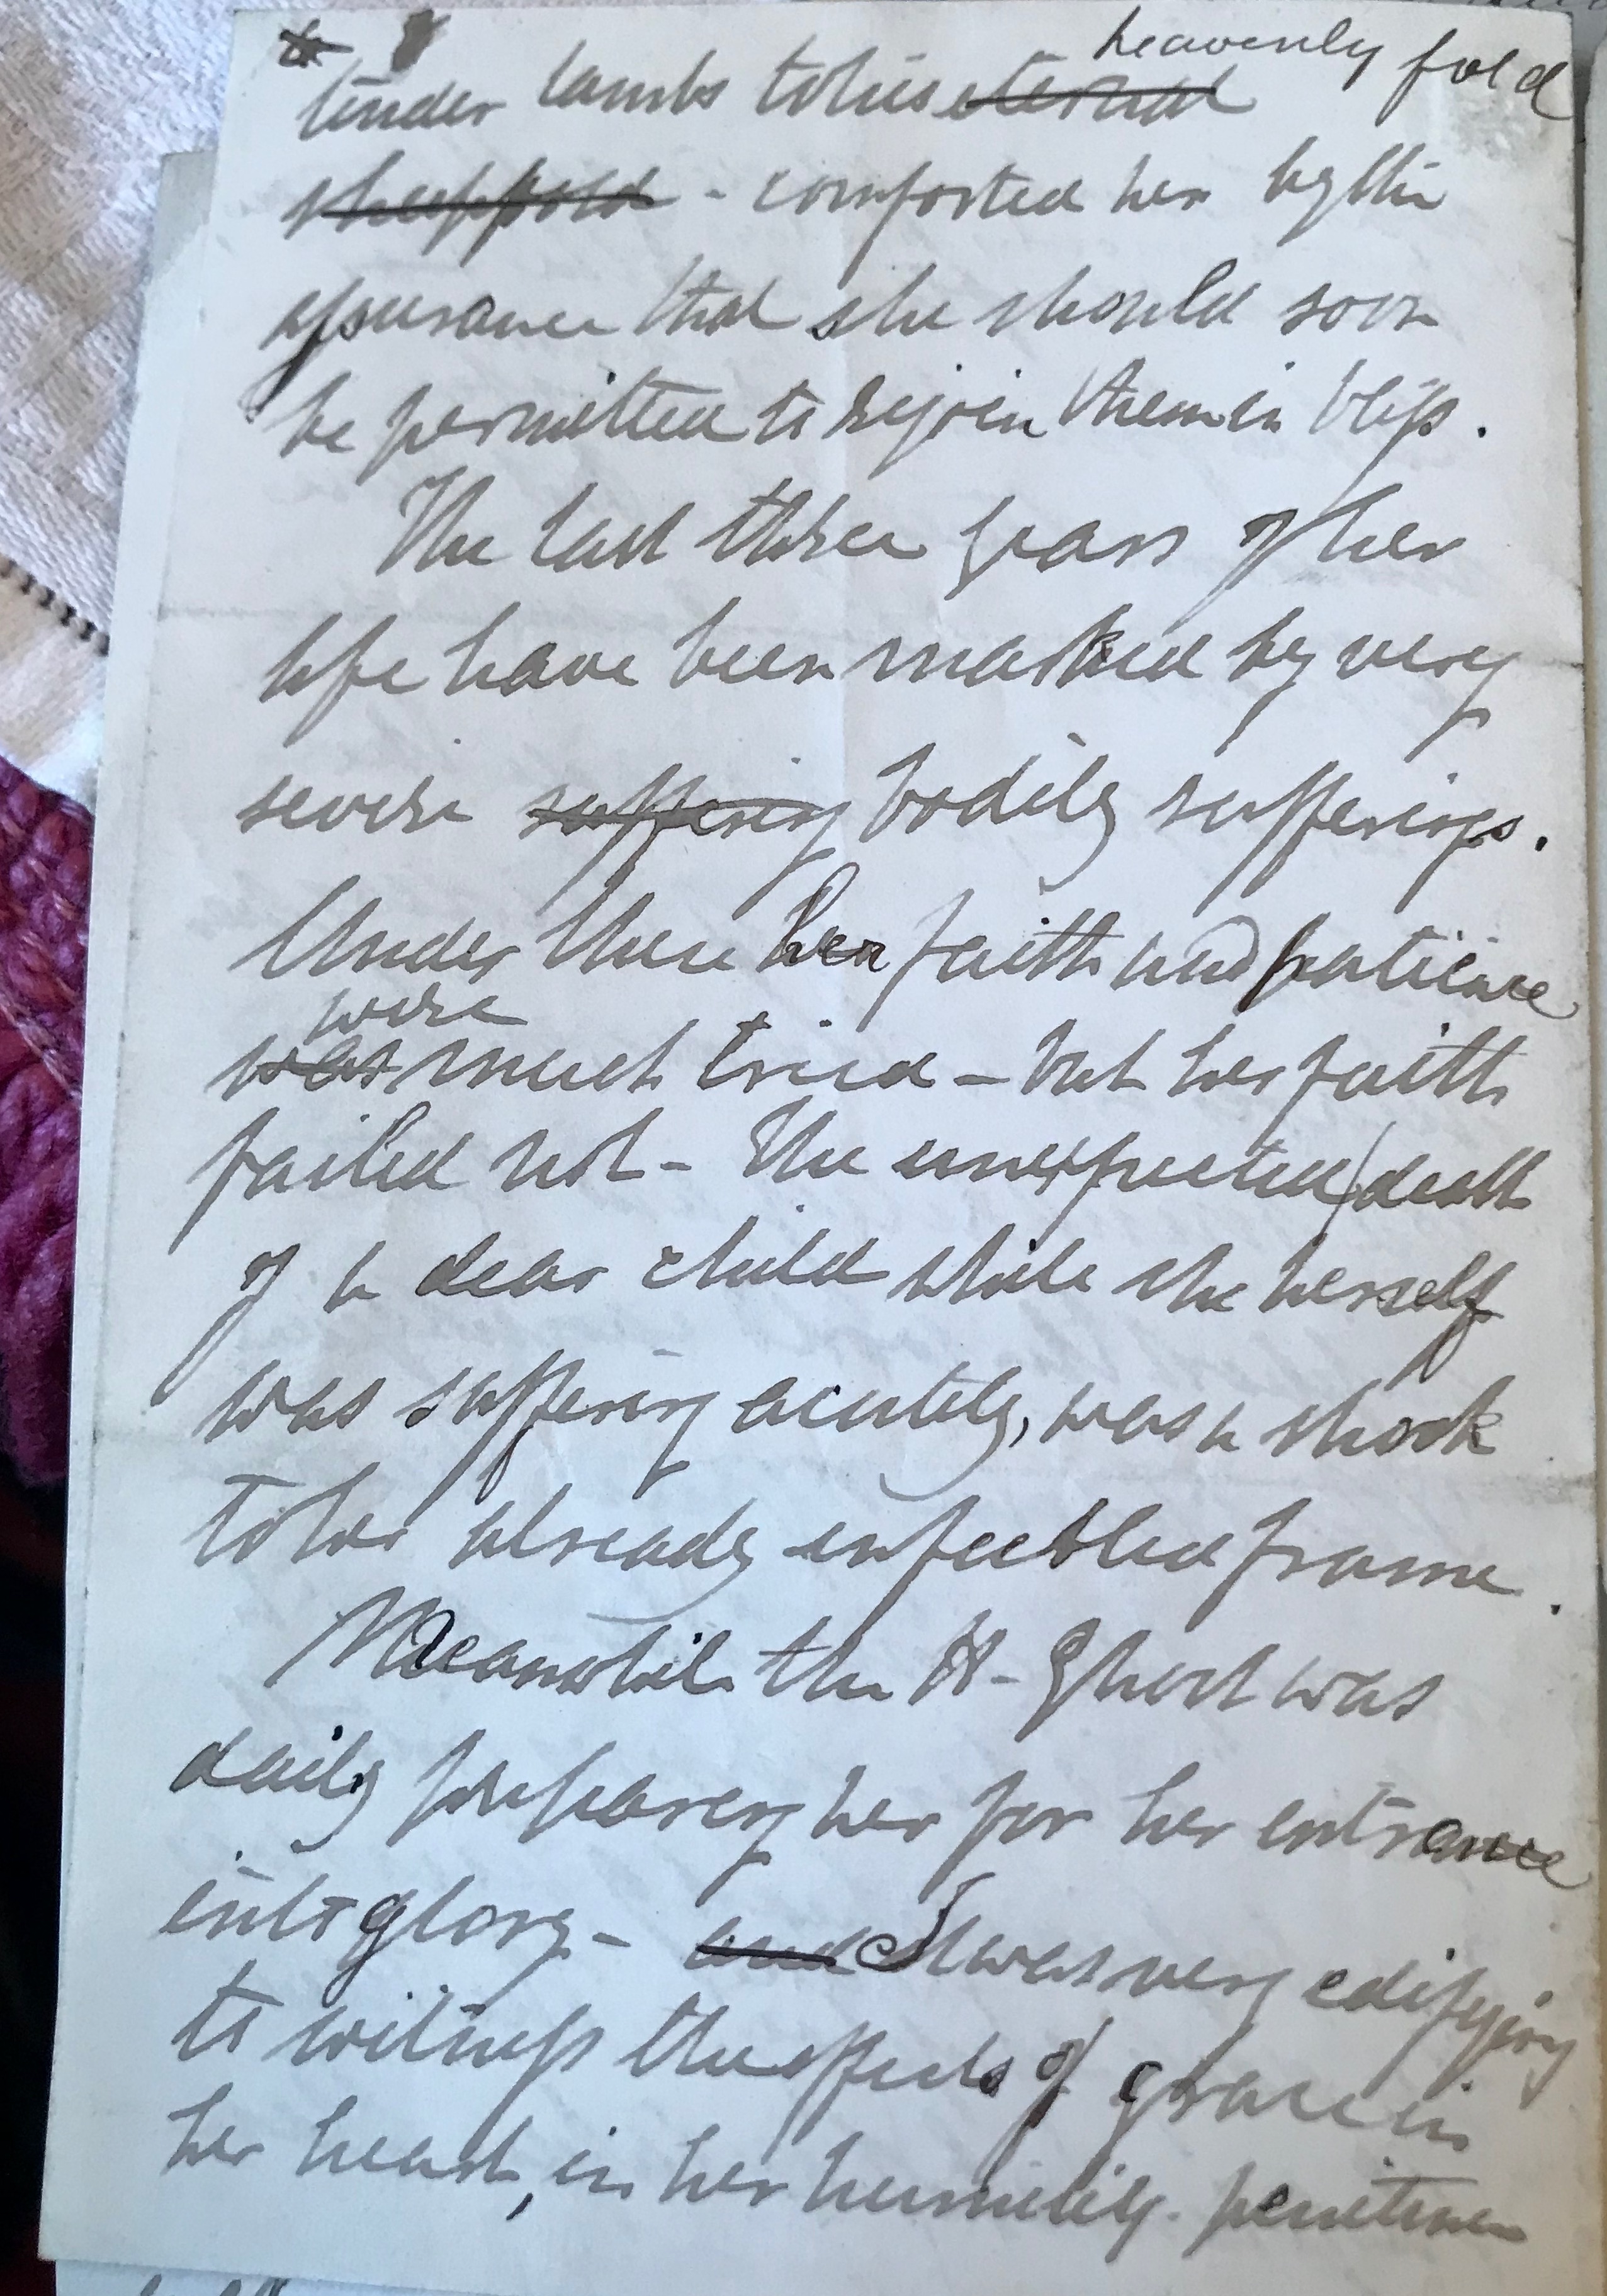 heavenly fold
tender lambs to his eternal
sheepfold - comforted her by the
assurance that she should soon
be permitted to rejoin them in bliss.
The last three years of her
life have been marked by very
severe suffering bodily sufferings.
Under these her faith and patience
were
was much tried - but her faith
failed not - The unexpected death
of a dear child while she herself
was suffering acutely, was a shock
to her already enfeebled frame.
Meanwhile the H- Ghost was
daily preparing her for her entrance
into glory - and It was very edifying
to witness the effects of grace in
her heart, in her humility - penitence